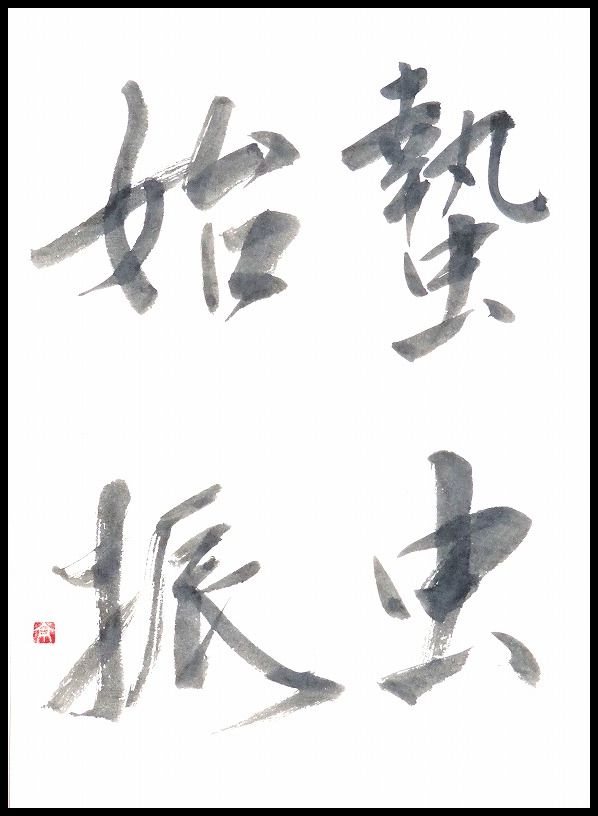 蟄虫
始振